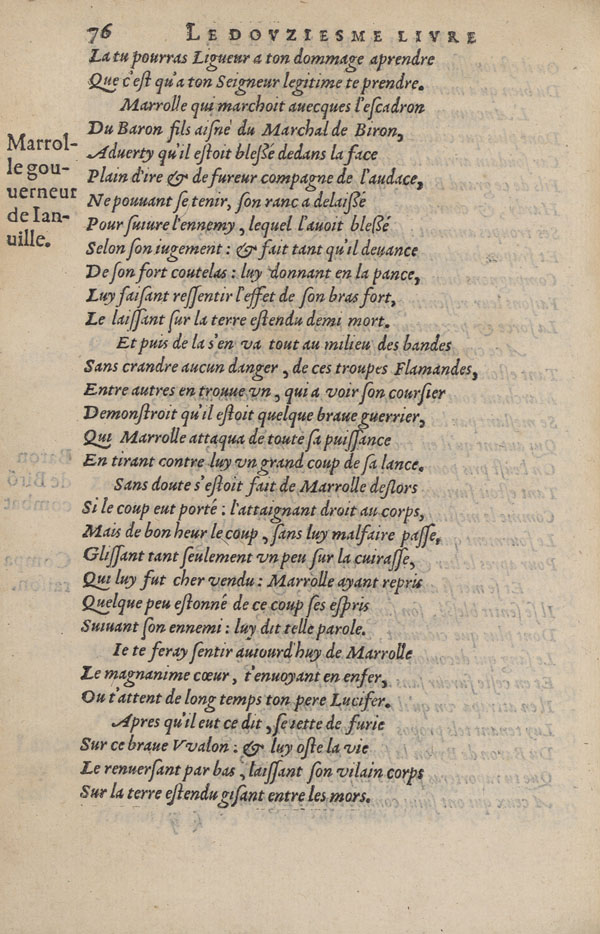 76 LE DOVZIESME LIVRE
La tu pourras Ligueur a ton dommage aprendre
Que c'est qu'a ton Seigneur legitime te prendre.
Marrolle qui marchoit auecques l'escadron
Du Baron fils aisné du Marchal de Biron,
Aduerty qu'il estoit blessé dedans la face
Plain d'ire & de fureur compagne de l'audace,
Ne pouuant se tenir, son ranc a delaissé
Pour suiure l'ennemy, lequel l'auoit blessé
Selon son iugement: & fait tant qu'il deuance
De son fort coutelas: luy donnant en la pance,
Luy faisant ressentir l'effet de son bras fort,
Le laissant sur la terre estendu demi mort.
Et puis de la s'en va tout au milieu des bandes
Sans crandre aucun danger, de ces troupes Flamandes,
Entre autres en trouue vn, qui a voir son coursier
Demonstroit qu'il estoit quelque braue guerrier,
Qui Marrolle attaqua de toute sa puissance
En tirant contre luy vn grand coup de sa lance.
Sans doute s'estoit fait de Marrolle deslors
Si le coup eut porté: l'attaignant droit au corps,
Mais de bon heur le coup, sans luy malfaire passe,
Glissant tant seulement vn peu sur la cuirasse,
Qui luy fut cher vendu: Marrolle ayant repris
Quelque peu estonné de ce coup ses espris
Suiuant son ennemi: luy dit telle parole.
Ie te feray sentir auiourd'huy de Marrolle
Le magnanime cœur, t'enuoyant en enfer,
Ou t'attent de long temps ton pere Lucifer.
Apres qu'il eut ce dit, se iette de furie
Sur ce braue Vvalon: & luy oste la vie
Le renuersant par bas, laissant son vilain corps
Sur la terre estendu gisant entre les mors.
Marrol-
le gou-
uerneur
de Ian-
uille.